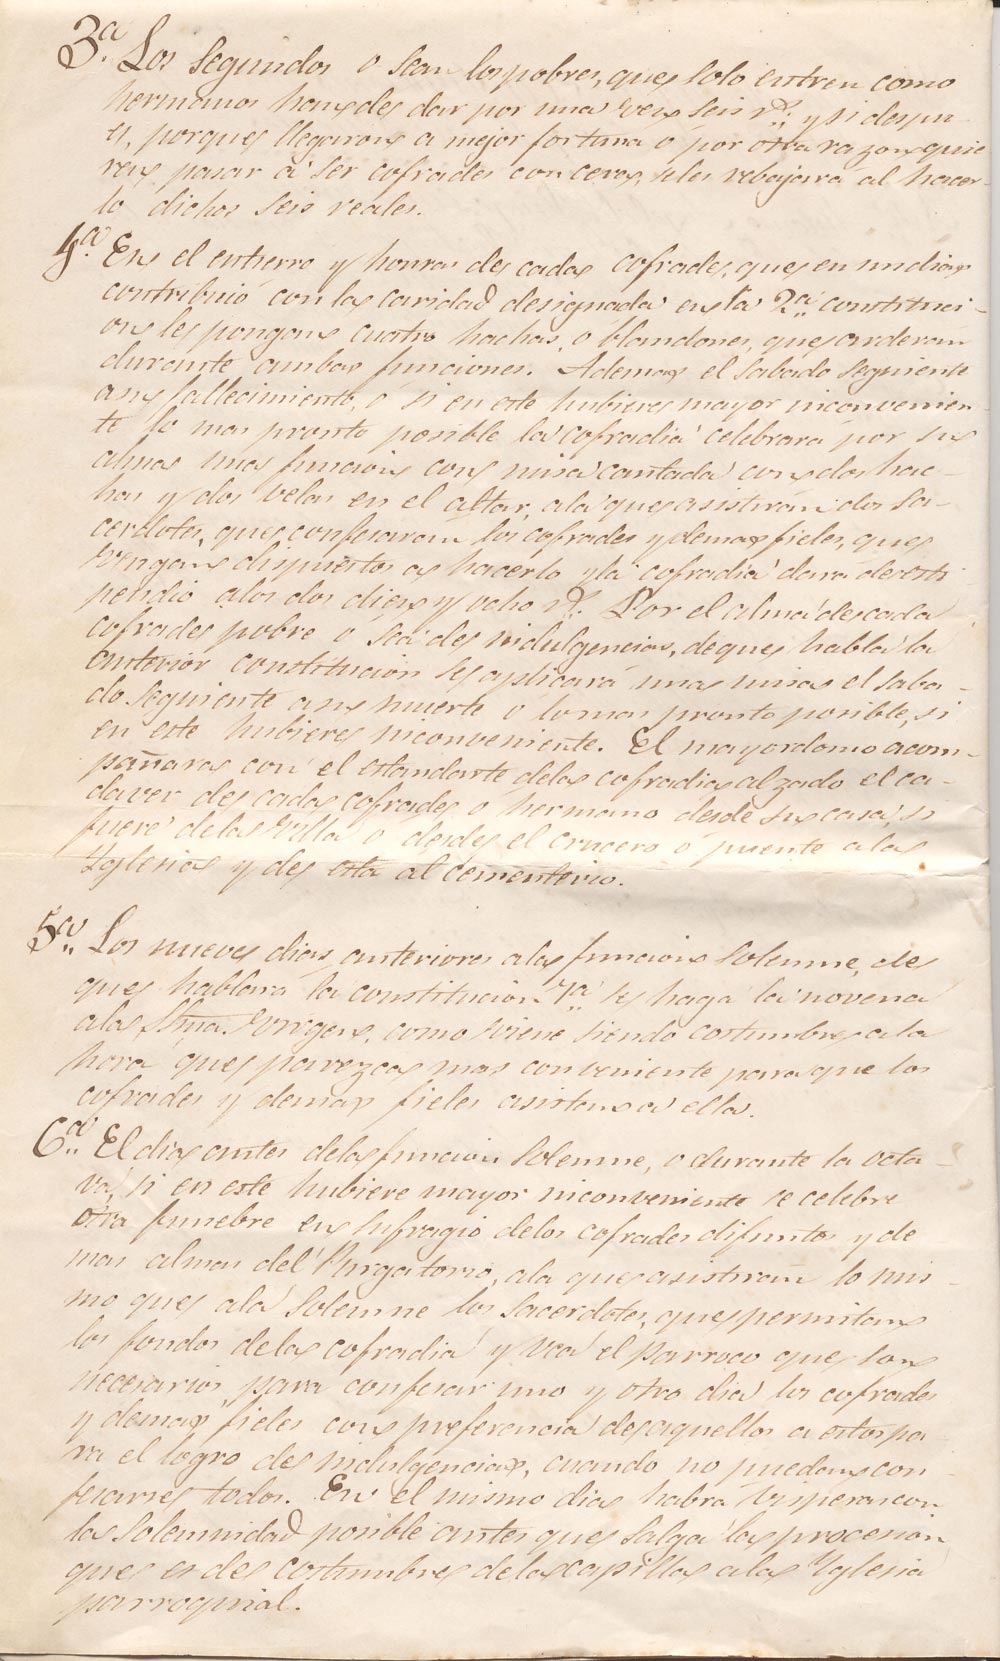 3.ª Los segundos o sean los pobres, que solo entren como
hermanos han de dar por una vez seis r.s; y si despu-
es, porque llegaron a mejor fortuna o por otra razon quie
ren pasar á ser cofrades con cera, se les rebajará al hacer-
lo dichos seis reales.
4.ª En el entierro y honras de cada cofrade, que en un dia
contribuió con la caridad designada en la 2.ª constituci-
on se pongan cuatro hachas, o blandones, que arderan
durante ambas funciones. Ademas el Sabado seguiente
a su fallecimiento, o si en este hubiere mayor inconvenien-
te lo mas pronto posible la cofradia celebrará por su
alma una funcion con misa cantada con dos hac-
has y dos velas en el altar, a la que asistiran dos Sa-
cerdotes, que confesaran los cofrades y demas fieles, que
vengan dispuestos a hacerlo y la cofradia dará de esti
pendio a los dos diez y ocho r.s. Por el alma de cada
cofrade pobre o sea de indulgencias, de que habla la
anterior constitucion se aplicará una misa el Saba-
do seguiente a su muerte o lo mas pronto posible, si
en este hubiere inconveniente. El mayordomo acom-
pañara con el estandarte de la cofradia alzado el ca-
daver de cada cofrade, o hermano desde su casa, si
fuere de la Villa o desde el crucero o puente a la
Yglesia y de esta al cementerio.
5.ª Los nueve dias anteriores a la funcion Solemne, de
que hablara la constitucion 7.ª se haga la novena
a la Stma. Virgen, como viene siendo costumbre a la
hora que parezca mas conveniente para que los
cofrades y demas fieles asistan a ella.
6.ª El dia antes de la funcion Solemne, o durante la octa-
va, si en este hubiere mayor inconveniente se celebre
otra funebre en Sufragio de los cofrades difuntos y de
mas almas del Purgatorio, a la que asistiran lo mis-
mo que a la Solemne los Sacerdotes, que permitan
los fondos de la cofradia y vea el parroco que son
necesarios para confesar uno y otro dia los cofrades
y demas fieles con preferencia de aquellos a estos pa-
ra el logro de indulgencias, cuando no puedan con
fesarse todos. En el mismo dia habra Visperas con
la Solemnidad posible antes que Salga la procesion,
que es de costumbre de la capilla a la Yglesia
parroquial.